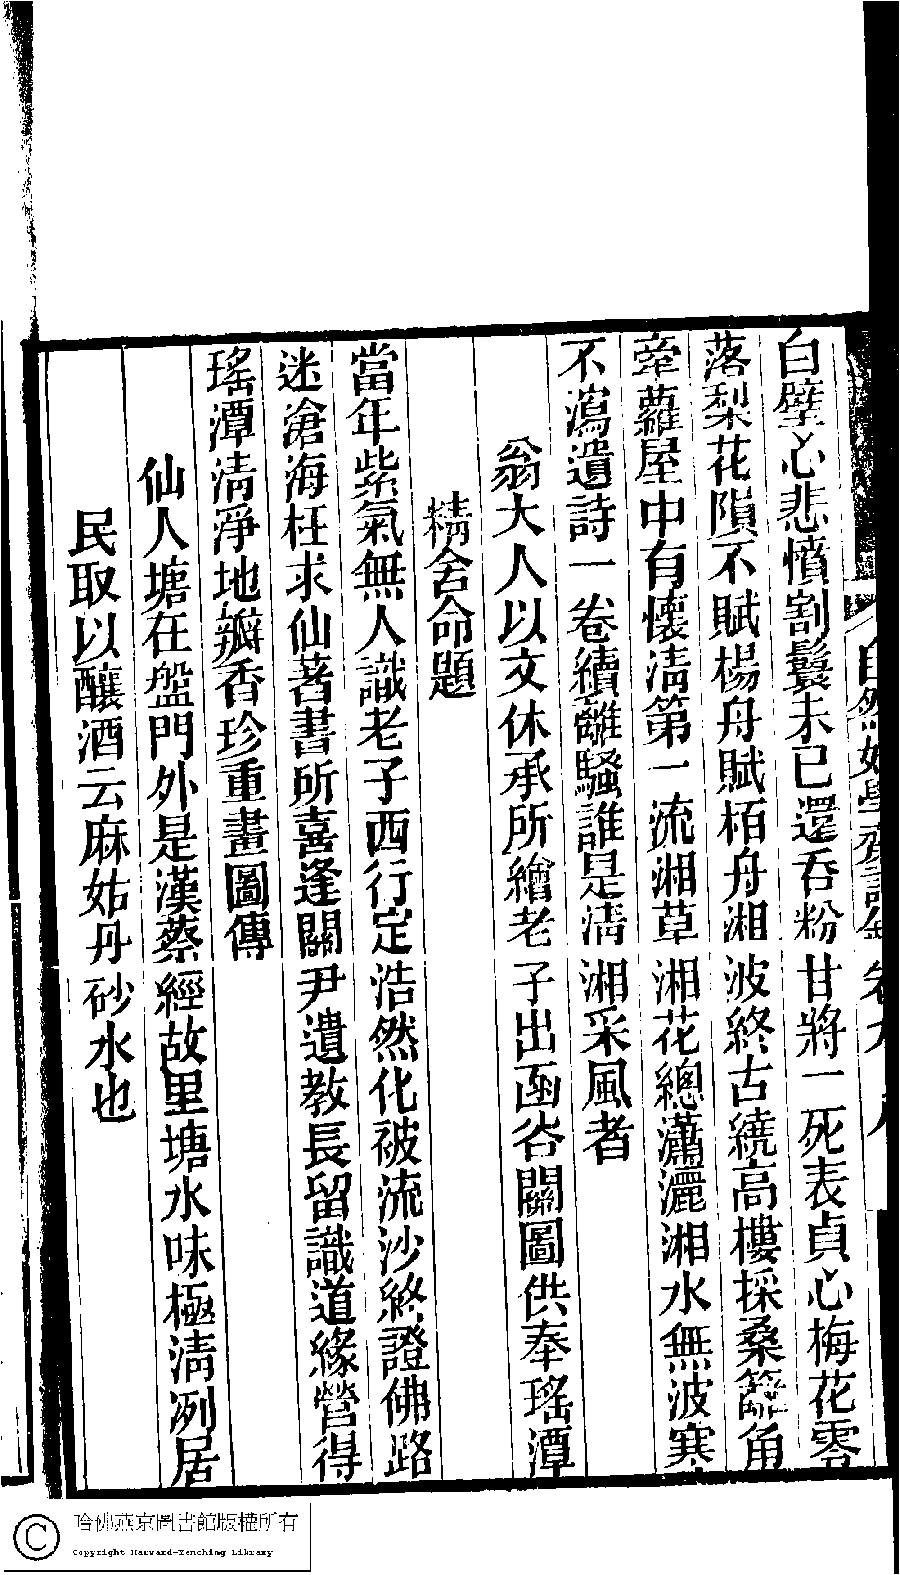 白璧心悲憤割鬟未已還吞粉甘將一死表貞心梅花零
落梨花隕不賦楊舟賦栢舟湘波終古繞高樓採桑籬角
牽蘿屋中有懷淸第一流湘草湘花總瀟灑湘水無波寒
不瀉遺詩一卷續離騷誰是淸湘采風者
翁大人以文休承所繪老子出函谷關圖供奉瑤潭
精舍命題
當年紫氣無人識老子西行定浩然化被流沙終證佛路
迷滄海枉求仙著書所喜逢關尹遺教長留識道緣營得
瑤潭淸淨地瓣香珍重畫圖傳
仙人塘在盤門外是漢蔡經故里塘水味極淸冽居
民取以釀酒云麻姑丹砂水也
自然好學齋詩
哈佛燕京圖書館版權所有
Copyright Harvard-Yenching Library